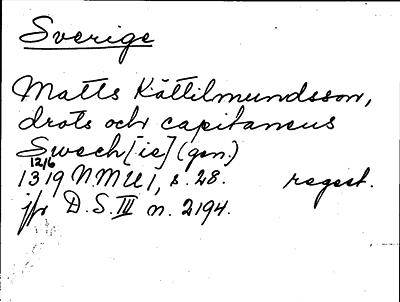 Sverige
Matts Kättilmundsson,
drots och capitaneus
Swech[ie] (gen.)
12/6
1319 NMU I, s. 28. regest.
jfr D.S. III n. 2194.